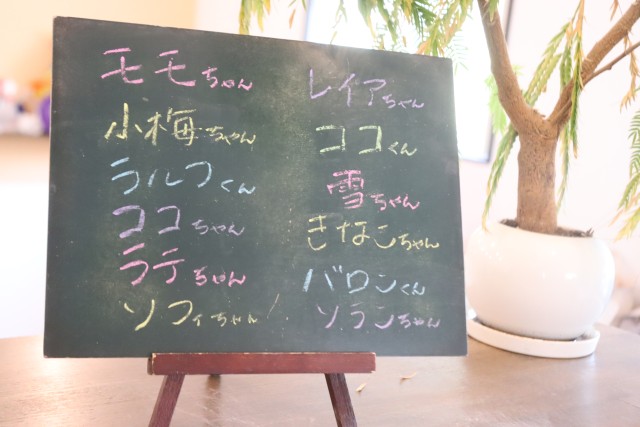 モモちゃん
小梅ちゃん
ラルフくん
ココちゃん
ラテちゃん
ソフィちゃん
レイアちゃん
ココくん
雪ちゃん
きなこちゃん
バロンくん
ソランちゃん